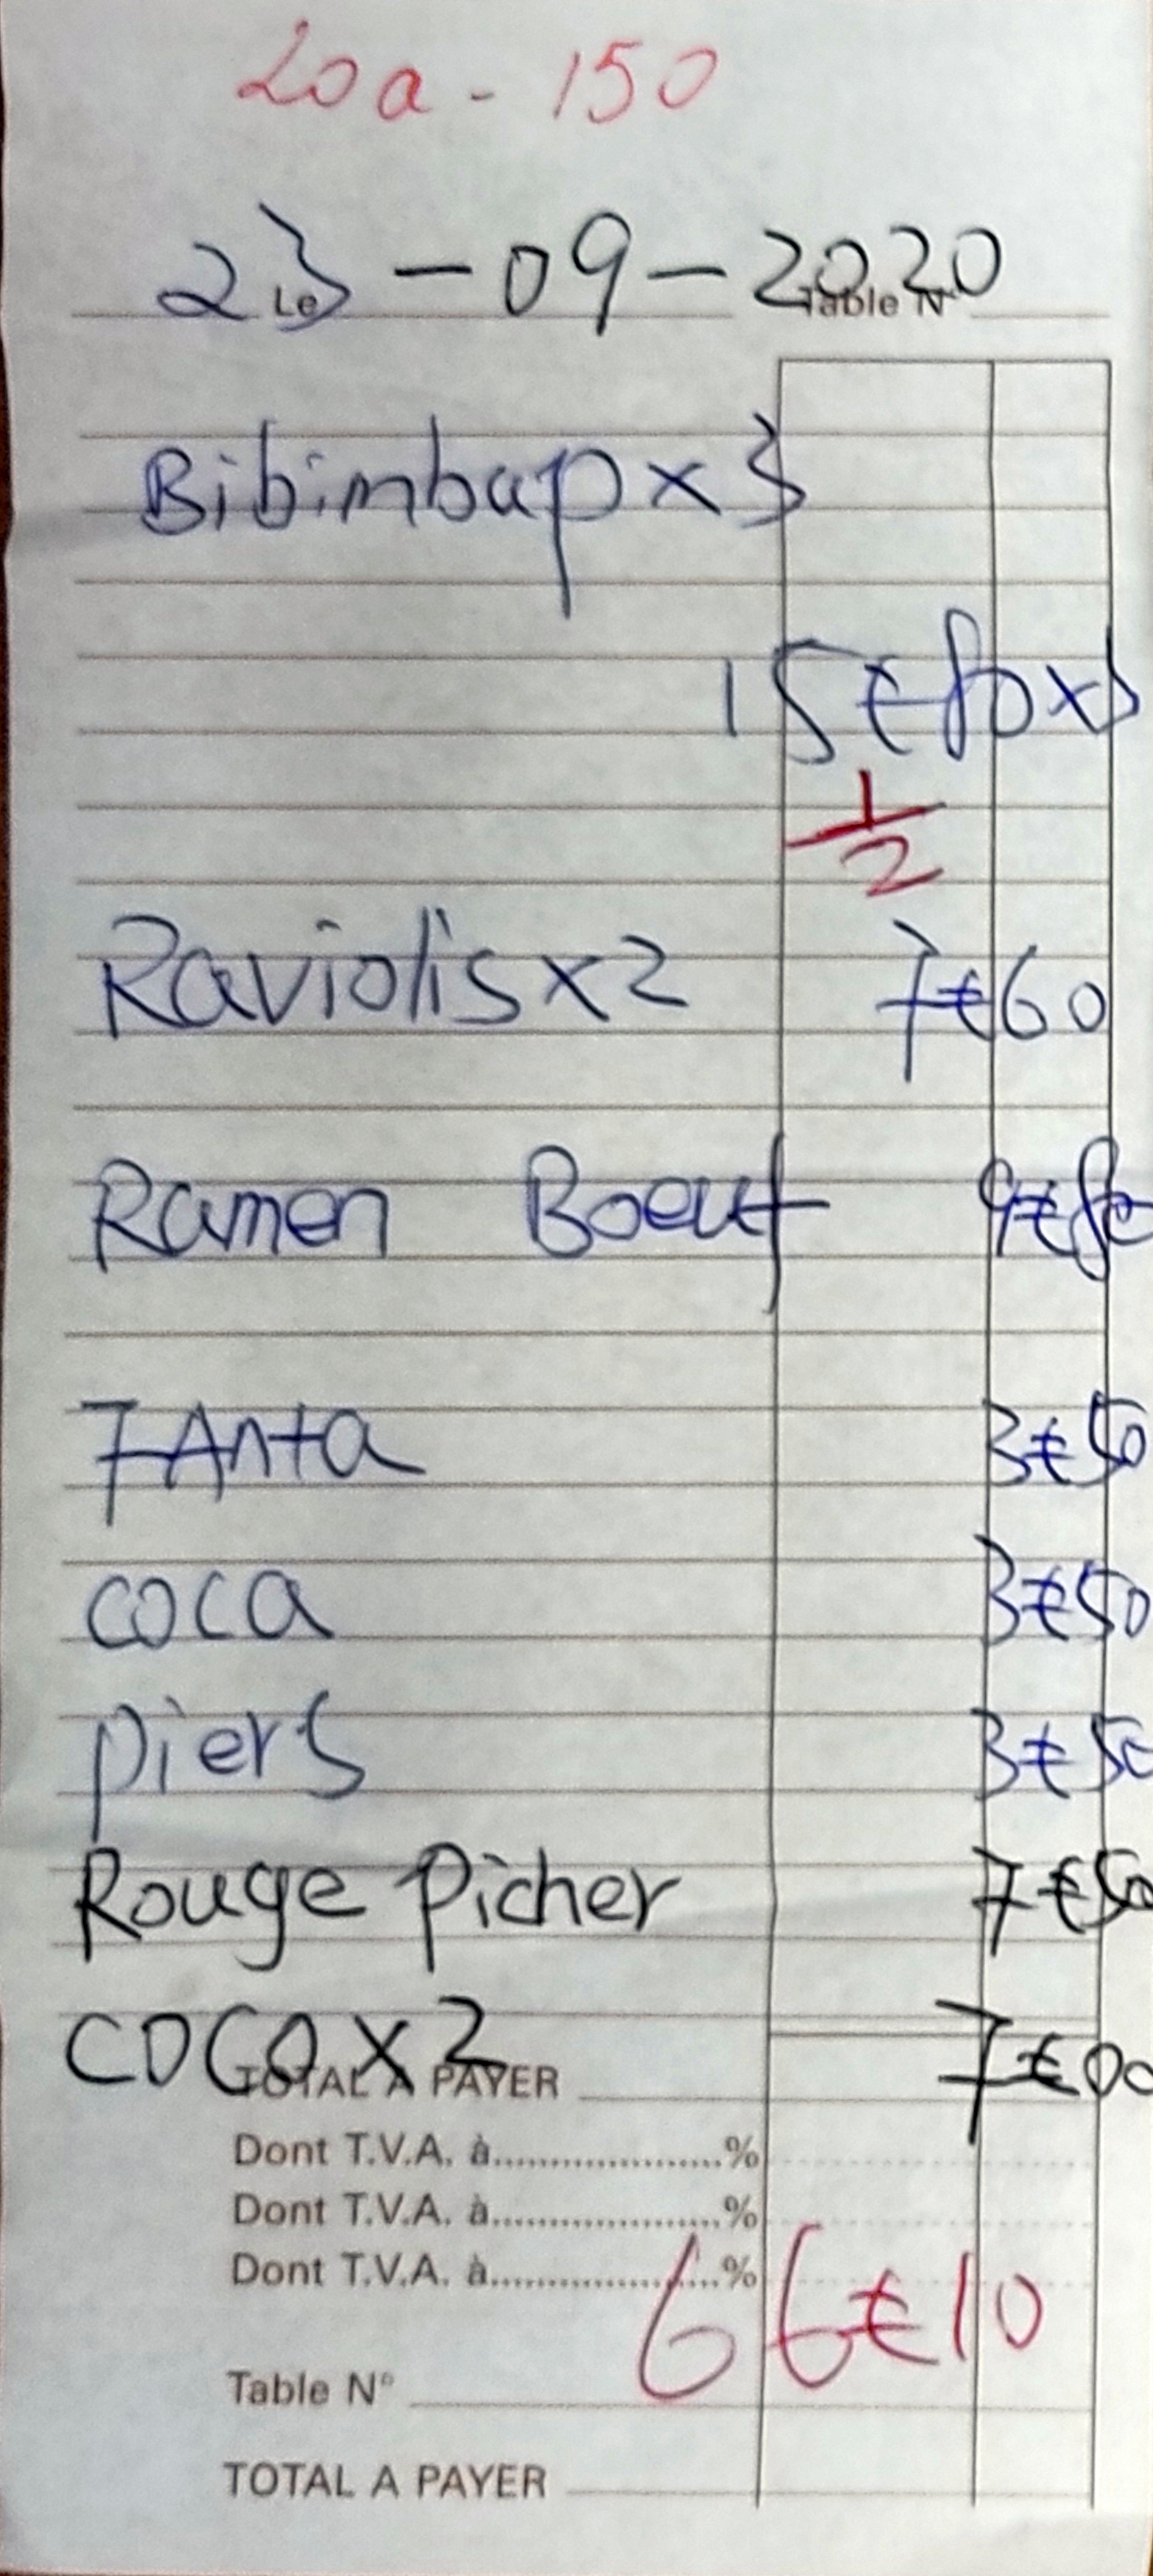 20a - 150
23 - 09 - 2020
Le Table N°
Bibimbap x 3
15€80 x 3
1/2
Raviolis x 2 7€60
Ramen Boeuf 9€80
FAnta 3€50
coca 3€50
piers 3€50
Rouge Picher 7€50
COCO X 2 7€00
TOTAL A PAYER
Dont T.V.A. à.....................%
Dont T.V.A. à.....................%
Dont T.V.A. à.....................%
66€10
Table N°
TOTAL A PAYER